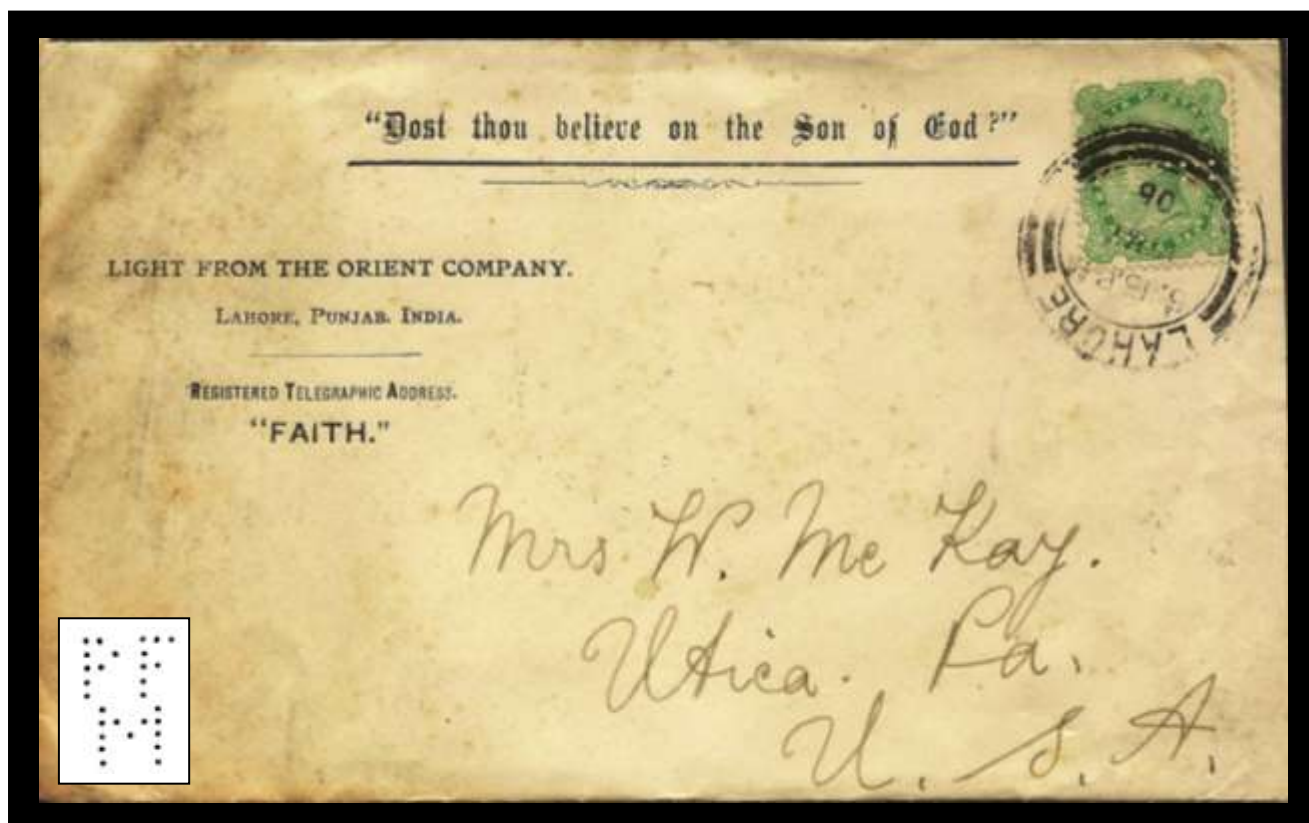 “Dost thou believe on the Son of God?”
LIGHT FROM THE ORIENT COMPANY.
LAHORE, PUNJAB. INDIA.
REGISTERED TELEGRAPHIC ADDRESS.
“FAITH.”
LAHORE
5.15.P.M
90
Mrs W. Mc Kay.
Utica. Pa.
U. S. A.
PF
M